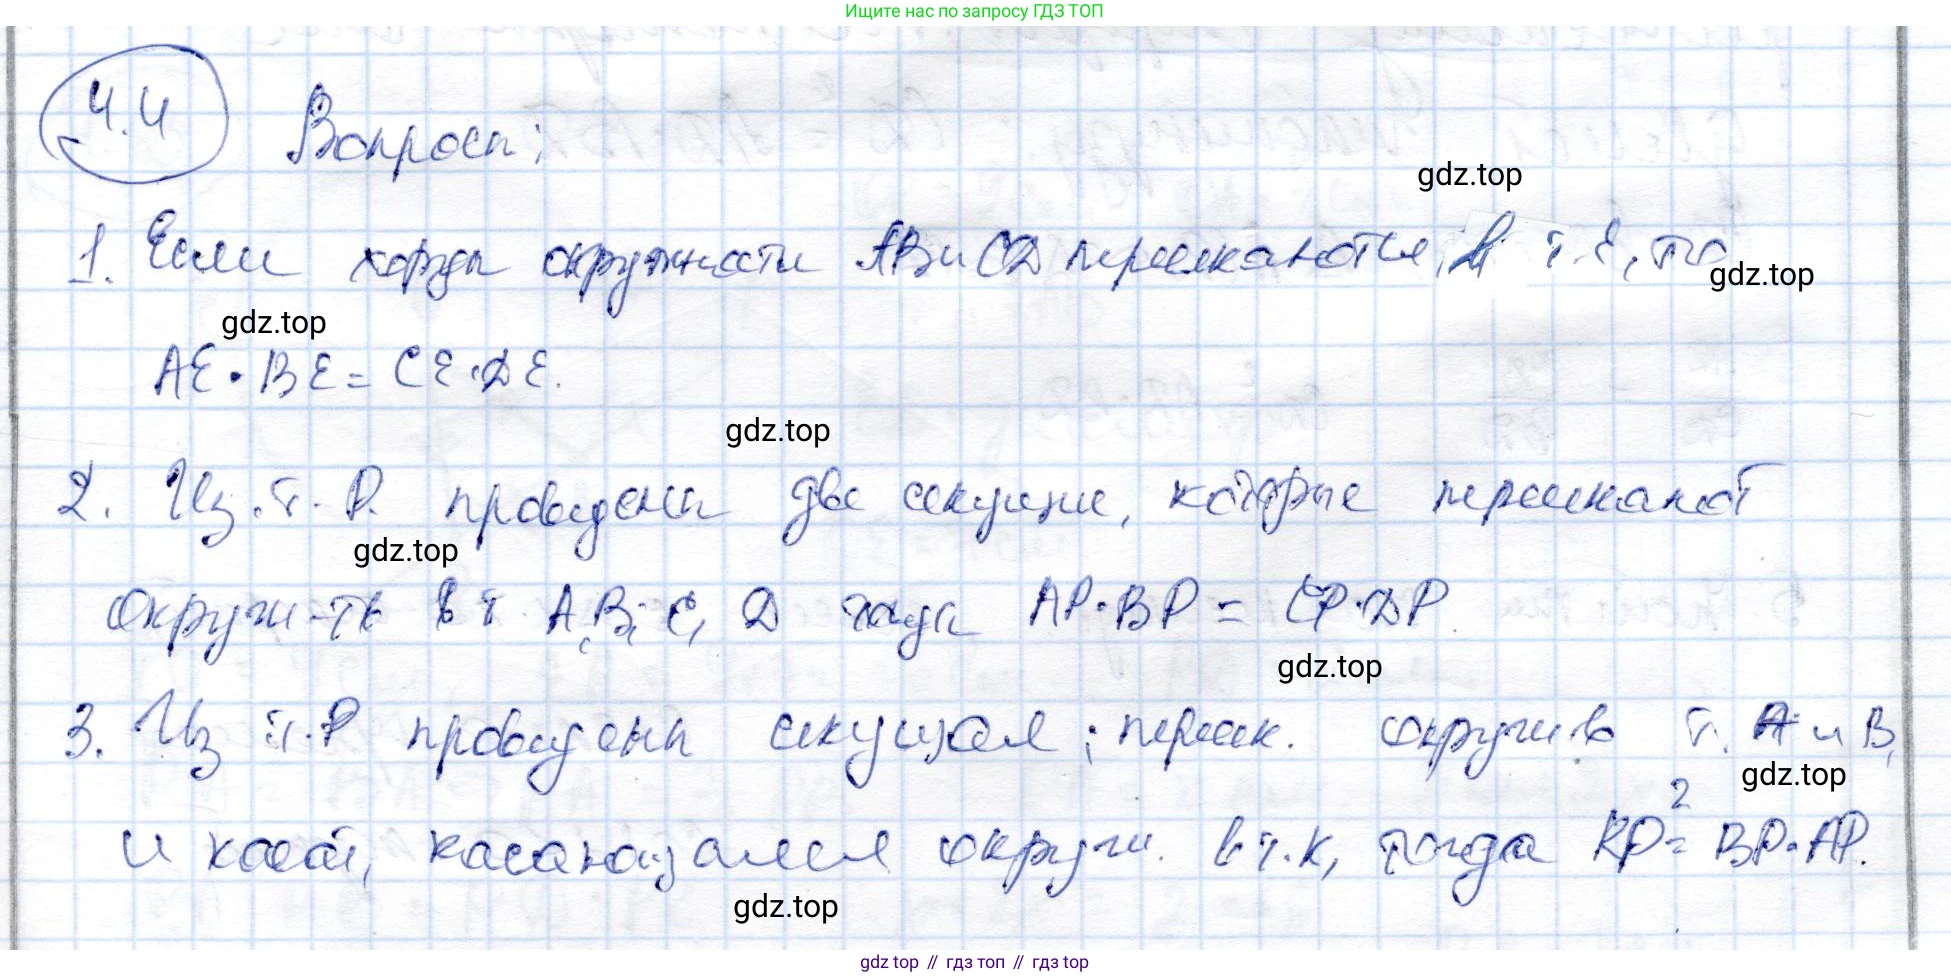 Ищите нас по запросу ГДЗ ТОП
4.4 Вопросы:
gdz.top
1. Если хорды окружности AB и CD пересекаются, в т. E, то
gdz.top
gdz.top
AE · BE = CE · DE.
gdz.top
2. Из т. P. проведены две секущие, которые пересекают
gdz.top
окруж-ть в т. A, B, C, D тогда AP · BP = CP · DP.
gdz.top
3. Из т. P проведены секущая, пересек. окруж в т. A и B,
gdz.top
и касат, касающаяся окруж. в т. K, тогда KP² = BP · AP.
gdz.top
gdz top // гдз топ // гдз top